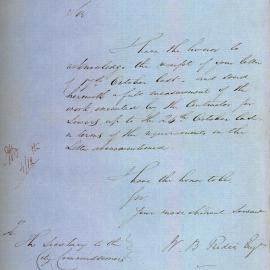 Sir
I have the honor to
acknowledge the receipt of your letter
of 17th October last - and send
herewith a full measurement of the
work executed by the Contractor for
Sewers up to the 24th October last
in terms of the requirements in the
Letter abovementioned.
I have the honor to be
Sir
Your most obedient Servant
W. B. Rider Esqr
To
The Secretary to the
City Commissioners